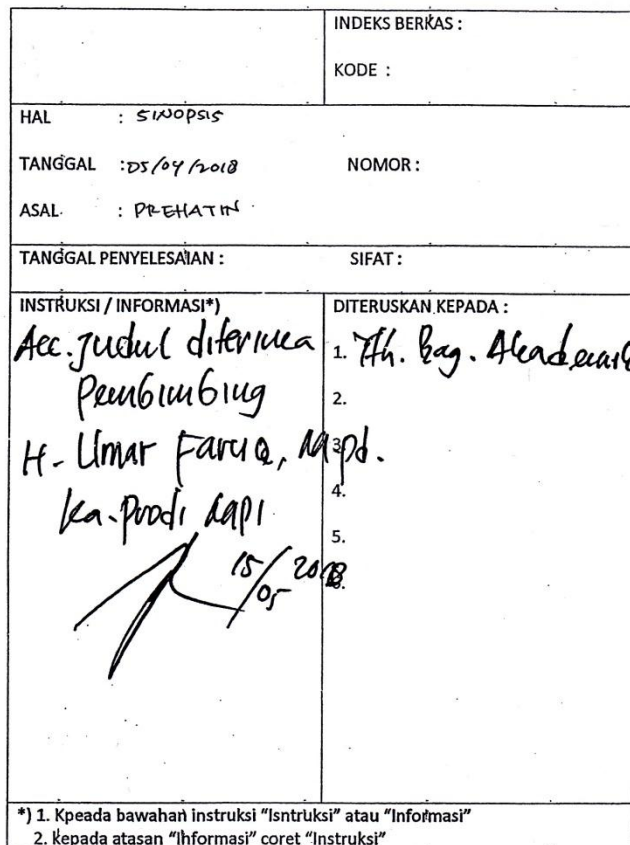 INDEKS BERKAS :
KODE :
HAL : SINOPSIS
TANGGAL : 05/04/2018 NOMOR :
ASAL : PREHATIN
TANGGAL PENYELESAIAN : SIFAT :
INSTRUKSI / INFORMASI*)
Acc. Judul diterima
Pembimbing
H. Umar Faruq, M.pd.
Ka. Prodi MPI
15/05 2018
DITERUSKAN KEPADA :
1. Yth. Bag. Akademik
2.
3.
4.
5.
*) 1. Kpeada bawahan instruksi "Isntruksi" atau "Informasi"
2. kepada atasan "Informasi" coret "Instruksi"